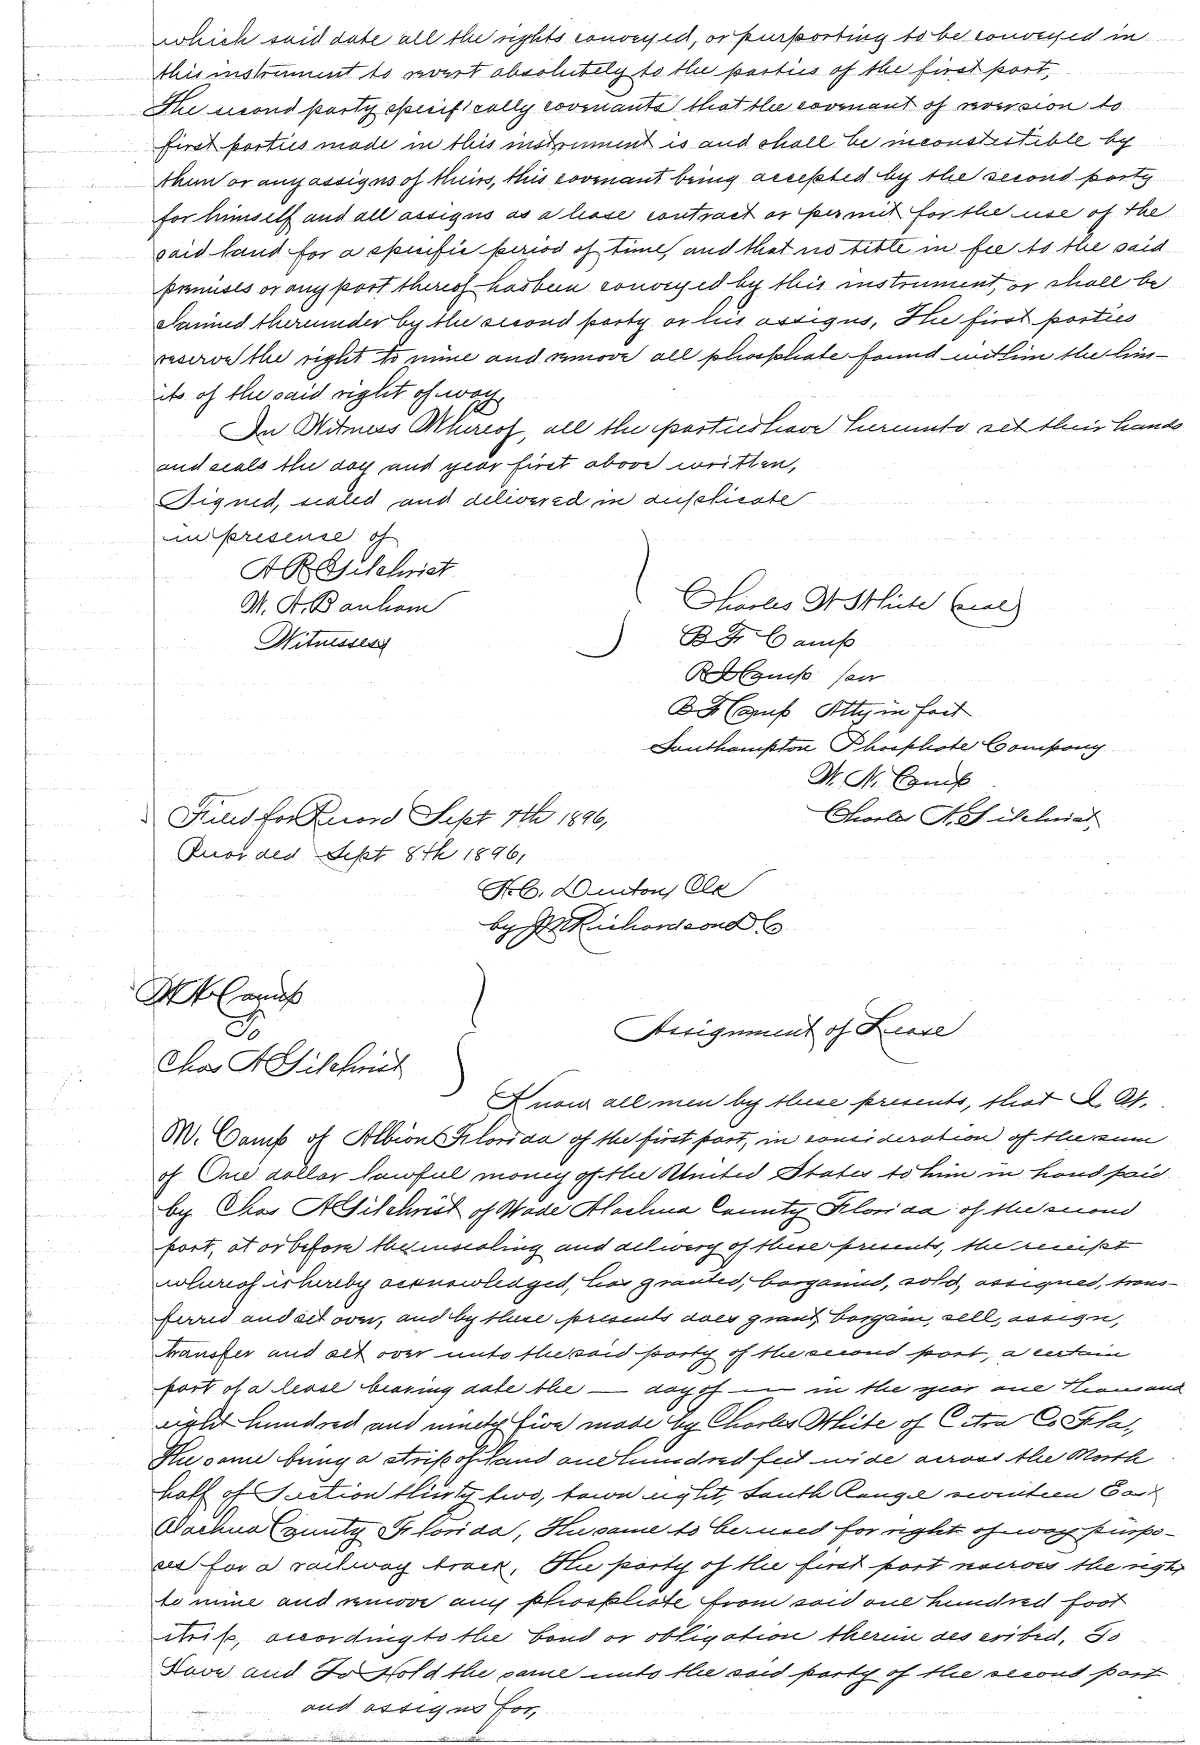 which said date all the rights conveyed, or purporting to be conveyed in
this instrument to revert absolutely to the parties of the first part,
The second party specifically covenants that the covenant of reversion to
first parties made in this instrument is and shall be inconstestible by
them or any assigns of theirs, this covenant being accepted by the second party
for himself and all assigns as a lease contract or permit for the use of the
said land for a specific period of time, and that no title in fee to the said
premises or any part thereof has been conveyed by this instrument, or shall be
claimed thereunder by the second party or his assigns, The first parties
reserve the right to mine and remove all phosphate found within the lim-
its of the said right of way,
In Witness Whereof, all the parties have hereunto set their hands
and seals the day and year first above written,
Signed, sealed and delivered in duplicate
in presense of
A R Gilchrist
W. A. Banham
Witnesses
Charles W White (seal)
B F Camp
R J Camp
B F Camp Atty in fact
Southampton Phosphate Company
W. N. Camp
Charles A. Gilchrist,
Filed for Record Sept 7th 1896,
Recorded Sept 8th 1896,
H. C. Denton, Clk
by J M Richardson D. C
W N Camp
To
Chas A Gilchrist
Assignment of Lease
Know all men by these presents, that I W.
N. Camp of Albion Florida of the first part, in consideration of the sum
of One dollar lawful money of the United States to him in hand paid
by Chas A Gilchrist of Wade Alachua County Florida of the second
part, at or before the ensealing and delivery of these presents, the receipt
whereof is hereby acknowledged, has granted, bargained, sold, assigned, trans-
ferred and set over, and by these presents does grant, bargain, sell, assign,
transfer and set over unto the said party of the second part, a certain
part of a lease bearing date the — day of — in the year one thousand
eight hundred and ninety five made by Charles White of Citra Co Fla,
The same being a strip of land one hundred feet wide across the North
half of Section thirty two, town eight, South Range seventeen East
Alachua County Florida, The same to be used for right of way purpo-
ses for a railway track, The party of the first part reserves the right
to mine and remove any phosphate from said one hundred foot
strip, according to the bond or obligation therein described, To
Have and To Hold the same unto the said party of the second part
and assigns for,